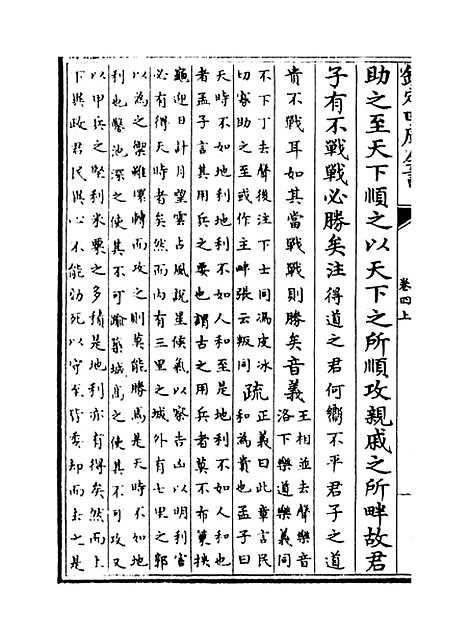 欽定四庫全書
卷四上
一
助之至天下順之以天下之所順攻親戚之所畔故君
子有不戰戰必勝矣注得道之君何嚮不平君子之道
貴不戰耳如其當戰戰則勝矣音義
王相並去聲樂音
洛下樂道樂義同
不下丁去聲後注下士同馮皮冰
切寡助之至或作主畔張云叛同
疏
正義曰此章言民
和為貴也孟子曰
天時不如地利地利不如人和至是地利不如人和也
者孟子言其用兵之要也謂古之用兵者莫不布策挾
龜迎日計月望雲占風說星候氣以察吉凶以明利害
必有得天時者矣然而內有三里之城外有七里之郭
以為之禦雖環轉而攻之則莫能勝焉是天時不如地
利也鑿池深之使其不可踰築城高之使其不可攻又
以甲兵之堅利米粟之多積是地利亦有得矣然而上
下異政君民異心不能効死以守至皆委却而去之是